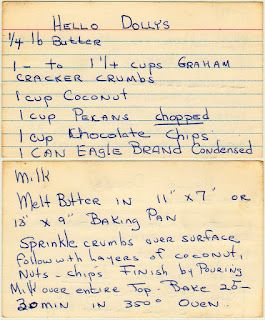 HELLO DOLLYS
1/4 lb Butter
1 - to 1 1/4 cups GRAHAM
CRACKER CRUMBS
1 cup Coconut
1 cup PEKANS chopped
1 cup Chocolate Chips
1 CAN EAGLE BRAND Condensed
Milk
Melt Butter IN 11" x 7" OR
13" x 9" BAKING PAN
Sprinkle crumbs over surface
Follow with Layers of coconut,
Nuts - chips Finish by Pouring
Milk over entire Top. BAKE 25-
30 MIN IN 350° OVEN.